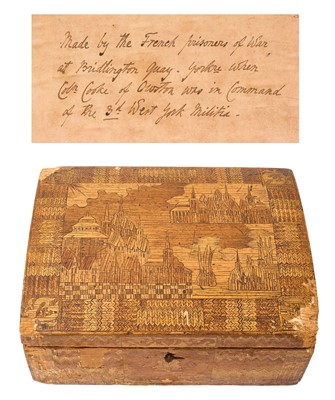 Made by the French prisoners of War
at Bridlington Quay. Yorks when
Col: Cooke of Owston was in Command
of the 3d West York Militia.